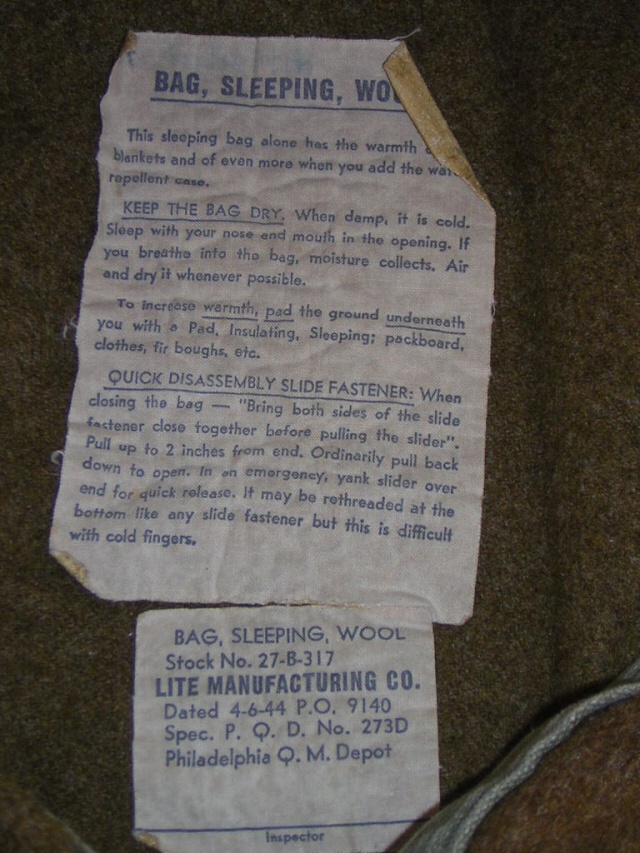 BAG, SLEEPING,
This sleeping bag alone has the warmth
blankets and of even more when you add the
repellent case.
KEEP THE BAG DRY. When damp, it is cold.
Sleep with your nose and mouth in the opening. If
you breathe into the bag, moisture collects. Air
and dry it whenever possible.
To increase warmth, pad the ground underneath
you with a Pad, Insulating, Sleeping; packboard,
clothes, fir boughs, etc.
QUICK DISASSEMBLY SLIDE FASTENER: When
closing the bag — "Bring both sides of the slide
fastener close together before pulling the slider".
Pull up to 2 inches from end. Ordinarily pull back
down to open. In an emergency, yank slider over
end for quick release. It may be rethreaded at the
bottom like any slide fastener but this is difficult
with cold fingers.
BAG, SLEEPING, WOOL
Stock No. 27-B-317
LITE MANUFACTURING CO.
Dated 4-6-44 P.O. 9140
Spec. P. Q. D. No. 273D
Philadelphia Q. M. Depot
Inspector